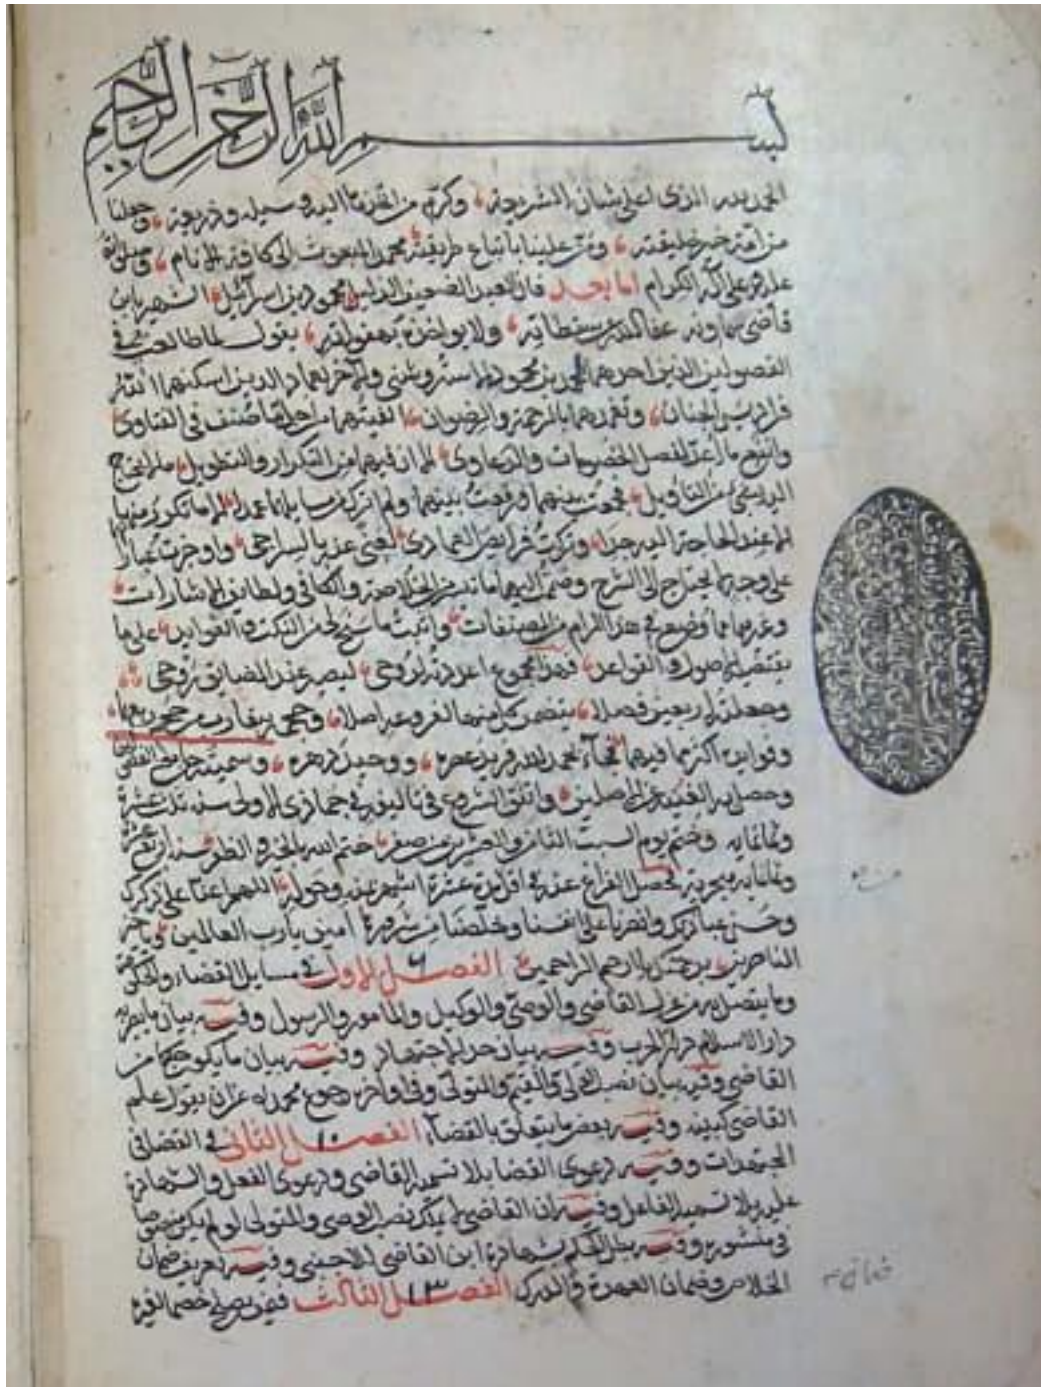 بسم الله الرحمن الرحيم
الحمد لله الذي اعلى شان الشريعة وكرم من اتخذها اليه وسيلة وذريعة وجعلنا
من امة خير خليقته ومن علينا باتباع طريقة محمد المبعوث الى كافة الانام وصلواته
عليه وعلى آله الكرام اما بعد فان العبد الضعيف الذليل محمود بن اسرائيل الشهير بابن
قاضي سماونه عفا الله عن سقطاته ولا يواخذه بهفواته يقول لما طالعت في
الفصولين الذين احدهما لمحمد بن محمود الاستروشني والآخر لعماد الدين اسكنهما الله
فراديس الجنان وتغمدهما بالرحمة والرضوان الفيتهما من اجل ما صنف في الفتاوى
وانفع ما اعد لفصل الخصومات والدعاوى الا ان فيهما من التكرار والتطويل ما لا يحتاج
اليه شيء من التاويل فجمعت بينهما ورفعت بينهما ولم اترك من مسايلهما عمدا الا ما تكرر منها
الا عند الحاجة اليه جدا وتركت فرايض العمادي لغنى عنه بالسراجي واوجزت عبارة
على وجه لا يحتاج الى الشرح وضممت اليهما ما تيسر من الخلاصة والكافي ولطايف الاشارات
وغيرها مما وضع في هذا المرام من المصنفات واثبت ما سنح لي من النكت والفوايد على ما
يقتضيه الاصول والقواعد فهذا مجموع اعددته لروحي ليصير عند المضايق روحي
وجعلته اربعين فصلا يتضمن كل منها لفروعه اصلا وحجمه يقارب حجم ربعهما
وفوايده اكثر مما فيهما فجاء بحمد الله فريد عصره ووحيد دهره وسميته جامع الفصولين
وحصل به الغنية عن الاصلين واتفق الشروع في تاليفه في جمادى الاولى سنة ثلث عشرة
وثمانمايه وختم يوم السبت الثاني والعشرين من صفر ختم الله بالخير والظفر سنة اربع عشرة
وثمانمايه هجرية فحصل الفراغ عنه في اقل من عشرة اشهر عنه وحوله اللهم اعنا على ذكرك
وحسن عبادتك وانصرنا على انفسنا وخلصنا من شرورها آمين يا رب العالمين ويا خير
الناصرين برحمتك يا ارحم الراحمين الفصل الاول ٦ في مسايل القضاء والحكم
وما يتصل به من عزل القاضي والوصي والوكيل والمامور والرسول وفيه بيان ما يصير به
دار الاسلام دار الحرب وفيه بيان حد الاجتهاد وفيه بيان ما يكون حكما من
القاضي وفيه بيان نصب الوصي والقيم والمتولي وفي اواخره رجوع محمد رح عن ان يقول علم
القاضي كبينه وفيه بعض ما يتعلق بالقضاء الفصل الثاني ١٠ في القضا في
المجتهدات وفيه دعوى القضا بلا تسمية القاضي ودعوى الفعل والشهادة
عليه بلا تسمية الفاعل وفيه ان القاضي لا يملك نصب الوصي والمتولي لو لم يكن منصوصا
في منشوره وفيه بطل الحكم بشهادة ابن القاضي للاجنبي وفيه تعريف ضمان
الخلاص وضمان العهدة والدرك الفصل الثالث ١٣ فيمن يصلح خصما لغيره